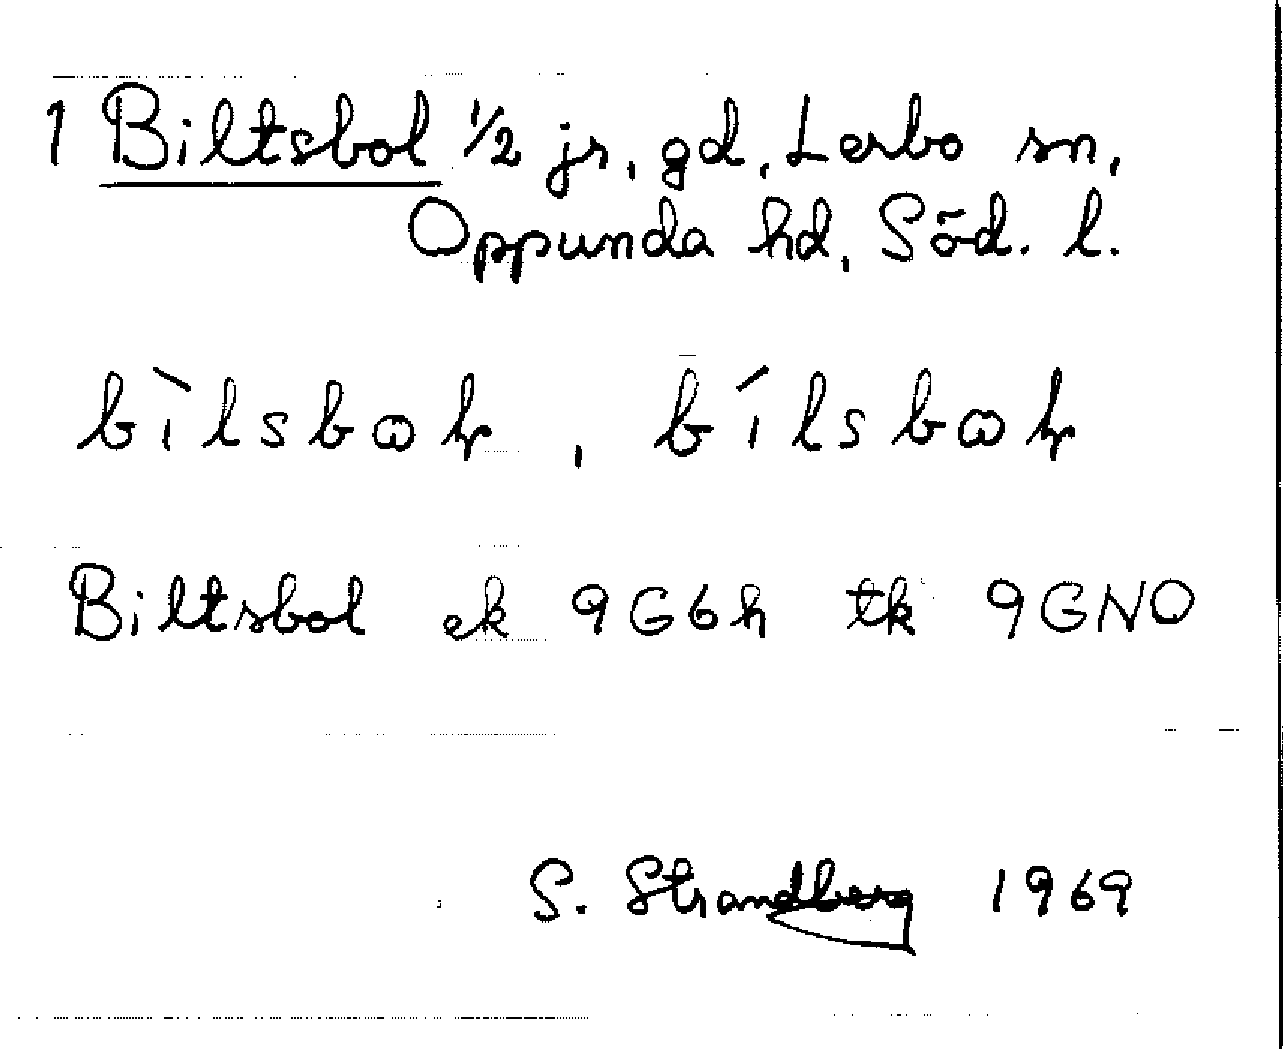 1 Biltsbol ½ jr, gd, Lerbo sn,
Oppunda hd, Söd. l.
Biltsbol ek 9G6h tk 9GNO
S. Strandberg 1969